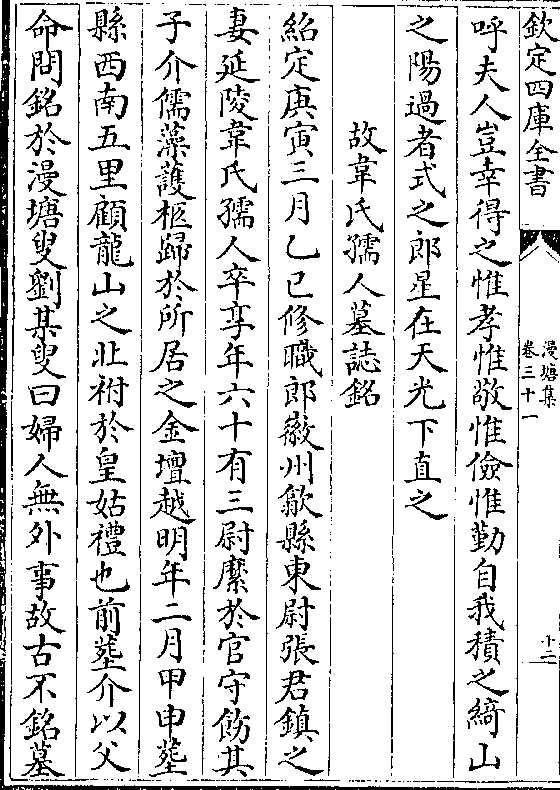 欽定四庫全書
漫塘集
卷三十一
十二
呼夫人豈幸得之惟孝惟敬惟儉惟勤自我積之綺山
之陽過者式之郎星在天光下直之
故韋氏孺人墓誌銘
紹定庚寅三月乙巳修職郎徽州歙縣東尉張君鎮之
妻延陵韋氏孺人卒享年六十有三尉縻於官守飭其
子介儒藻護柩歸於所居之金壇越明年二月甲申塟
縣西南五里顧龍山之壯祔於皇姑禮也前塟介以父
命問銘於漫塘叟劉某叟曰婦人無外事故古不銘墓